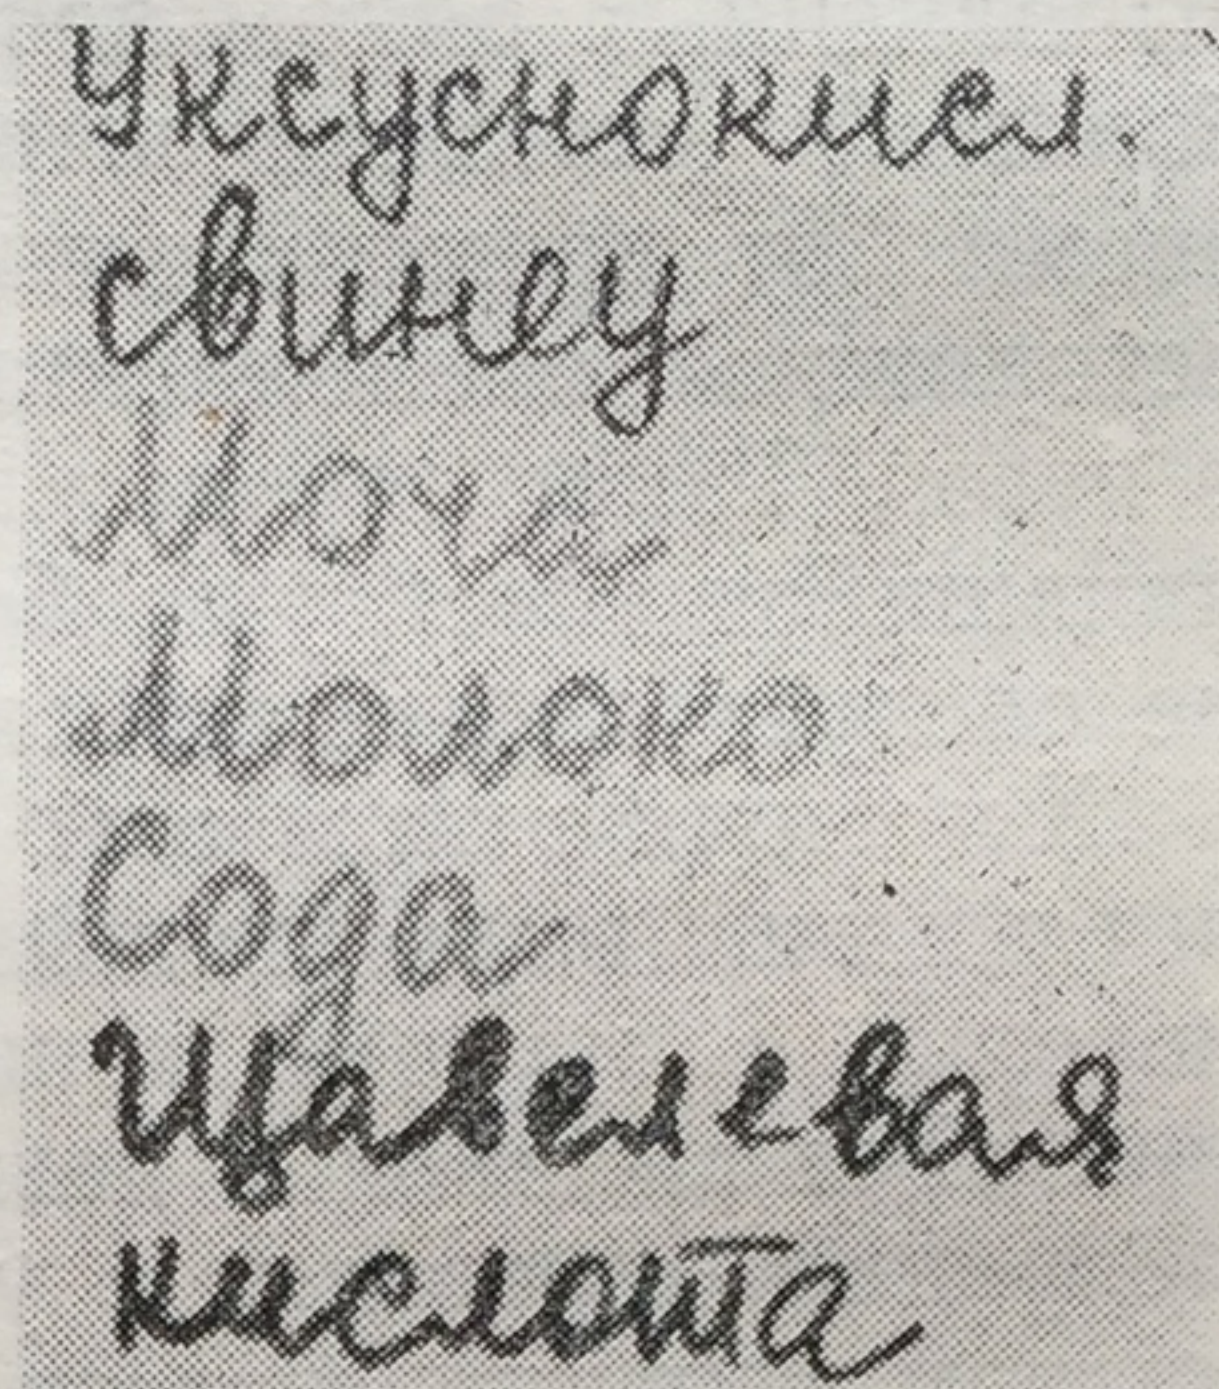 Уксуснокисл.
свинец
Моча
Молоко
Сода
Щавелевая
кислота